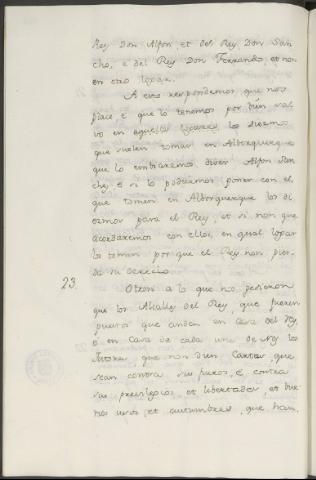 Rey Don Alfon, et del Rey Don San
cho, e del Rey Don Ferrando et non
en otro logar.
A esto respondemos que nos
place e que lo tenemos por bien sal
vo en aquellos logares los diezmos
que suelen tomar en Alborquerque
que lo enbiaremos dicer Alfon San
chez, e si lo pudiermos poner con el
que tomen en Alborquerque los di
ezmos para el Rey, et si non que
acordaremos con ellos, en qual logar
los toman por que el Rey non pier
da su derecho.
23. Otrosi a lo que nos pidieron
que los Alcalles del Rey, que fueren
puestos que anden en Casa del Rey,
o en Casa de cada uno de Nos los
Tutores que non dien Cartas, que
sean contra sus fueros, e contra
sus previlegios et libertades, et bue
nos usos, et custumbres, que han,